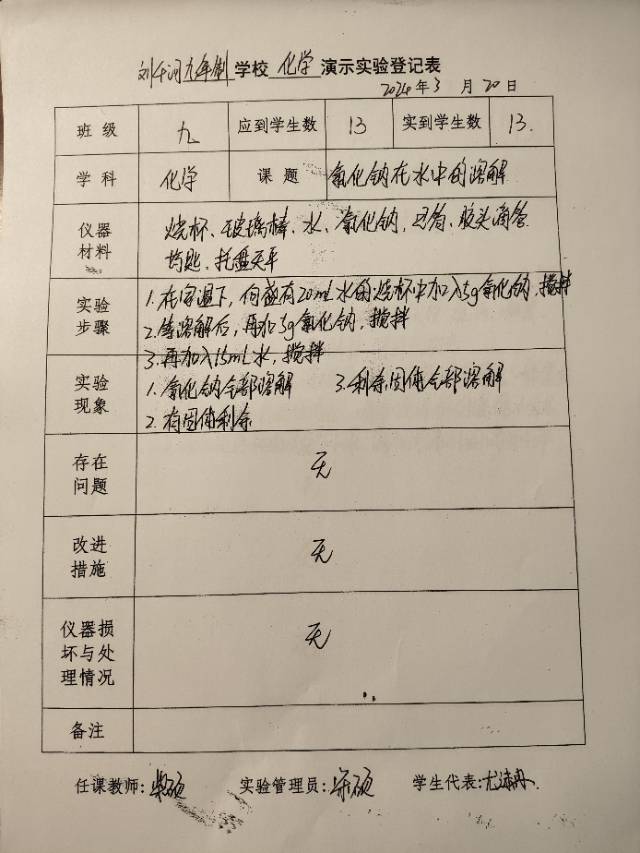 刘千河九年制学校 化学 演示实验登记表
2024年3月20日
班级 九 应到学生数 13 实到学生数 13.
学科 化学 课题 氯化钠在水中的溶解
仪器材料 烧杯、玻璃棒、水、氯化钠、量筒、胶头滴管
药匙、托盘天平
实验步骤 1.在室温下,向盛有20mL水的烧杯中加入5g氯化钠,搅拌
2.等溶解后,再加5g氯化钠,搅拌
3.再加入15mL水,搅拌
实验现象 1.氯化钠全部溶解 3.剩余固体全部溶解
2.有固体剩余
存在问题 无
改进措施 无
仪器损坏与处理情况 无
备注
任课教师: 实验管理员: 学生代表: